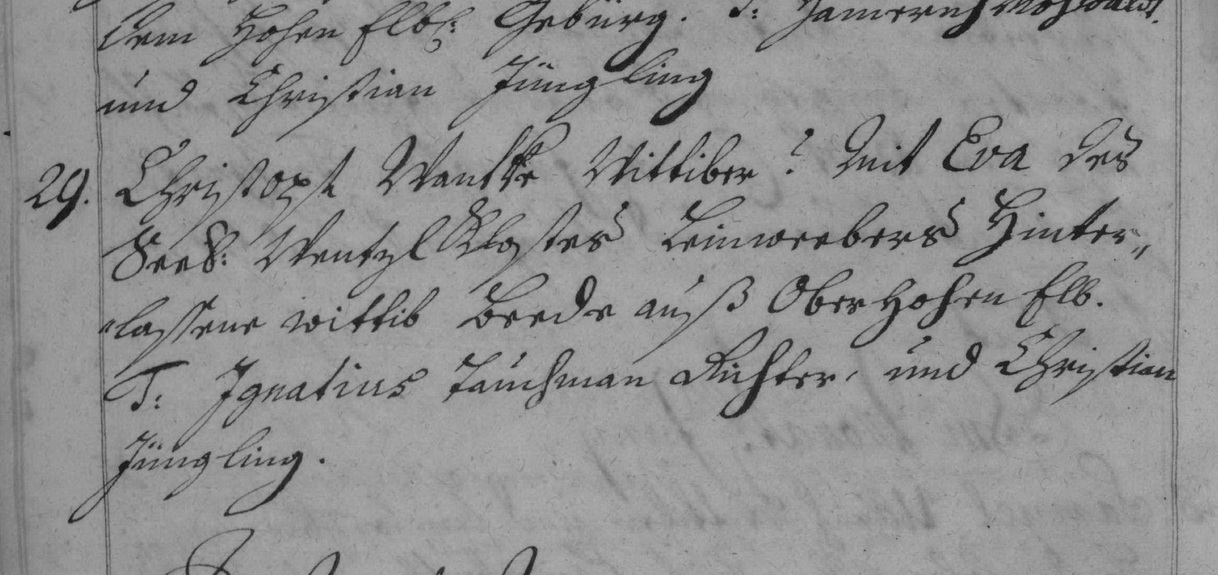 dem Hohen Elb: Gebürg. T:
und Christian Jüngling
29. Christoph Wantke Wittiber? Mit Eva des
Seel: Wentzl Klosters Leinwebers Hinter„
„lassene wittib Beede auß Ober Hohen Elb.
T: Ignatius Tauchman Richter, und Christian
Jüngling.